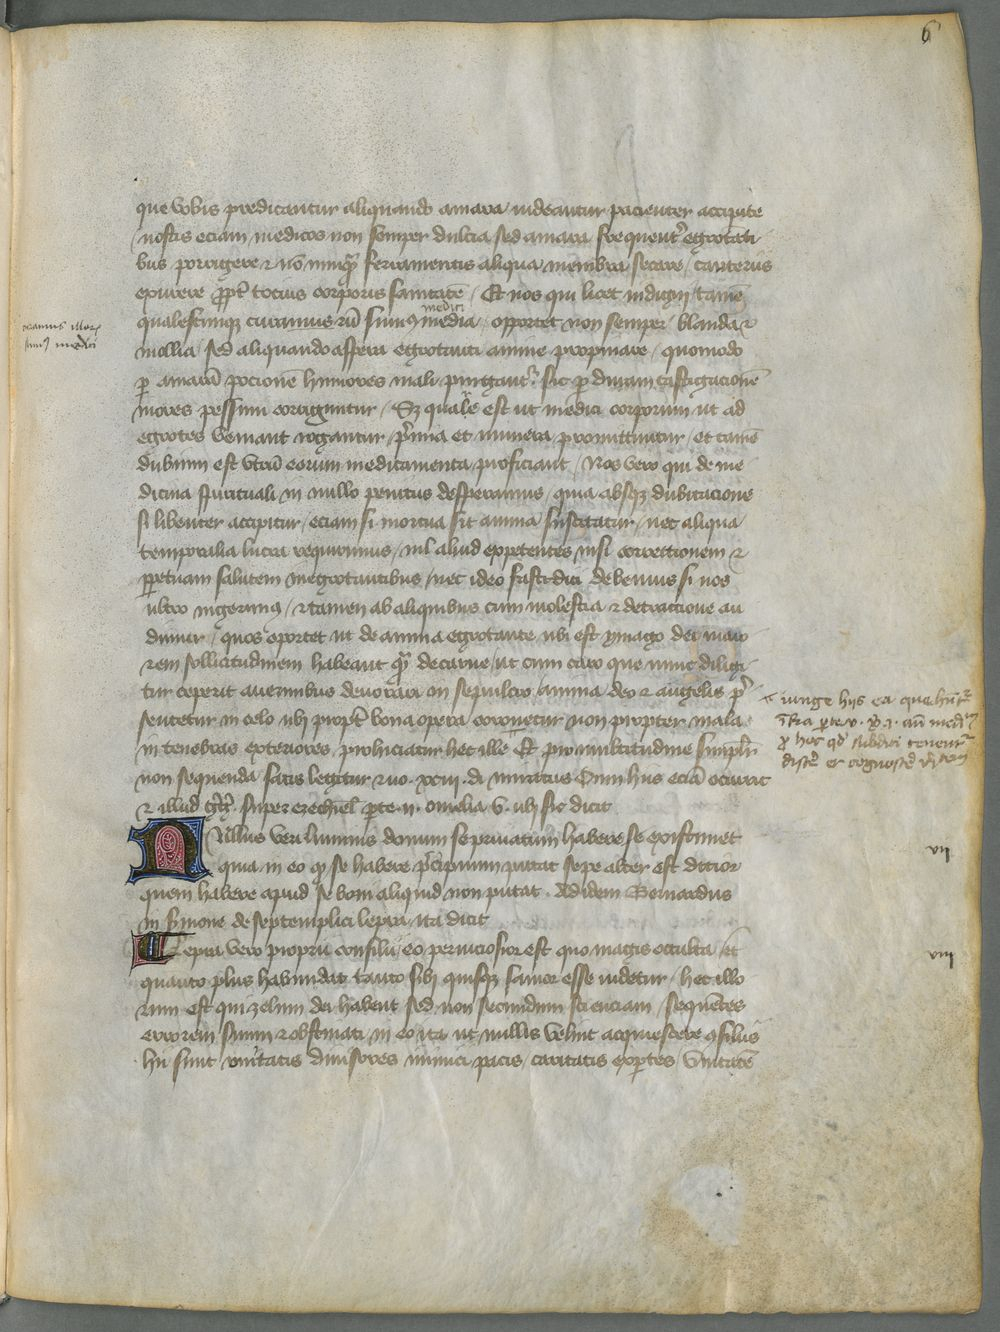 6
que vobis predicantur aliquando amara uideantur pacienter accipite
nostis eciam medicos non semper dulcia sed amara frequent᷑ egrotati
bus porrigere ⁊ nō nūq̄ꝫ ferramentis aliqua membra secare / cauteriis
exurere ꝓpt᷑ tocius corporis sanitatē / Et nos qui licet indigni tamē
qualescūqꝫ animarū sumꝰ media medici oportet non semper blanda ⁊
oramus illoꝝ
sumꝰ medici
mollia / sed aliquando aspera egrotanti anime propinare / quomodo
ꝑ amarā pocionē humores mali purgant᷑ sic ꝑ duram castigacionē
mores pessimi corriguntur / Sꝫ quale est ut medici corporum ut ad
egrotos veniant rogantur / p̄mia et munera promittuntur / et tamē
dubium est vtrū eorum medicamenta proficiant / Nos vero qui de me
dicina spirituali in nullo penitus desperamus / quia absqꝫ dubitacione
si libenter accipitur / eciam si mortua sit anima suscitatur / nec aliqua
temporalia lucra requirimus / nil aliud expetentes nisi correctionem ⁊
ꝑpetuam salutem in egrotantibus / nec ideo fastidiri debemus si nos
ultro ingerimꝰ / ⁊ tamen ab aliquibus cum molestia ⁊ detractione au
dimur / quos oportet ut de anima egrotante ubi est ymago dei maio
rem sollicitudinem habeant q̄ꝫ de carne / ut cum caro que nunc diligi
tur ceperit a uermibus deuorari in sepulcro / anima deo ⁊ angelis p̄
sentetur in celo ubi propt᷑ bona opera coronetur non propter mala
iunge hijs ea que hūt᷑
in tenebras exteriores prohiciatur hec ille Et pro multitudine simplici
ꝓ hoc qd᷑ subditi tenent᷑
non sequenda satis legitur
⁊ illud Super ezechiel ꝑte ii. omelia v. ubi sic dicit
Nullus veri luminis donum se priuatum habere se existimet
vii
quia in eo qꝫ se habere p̄cipuum putat sepe alter est dicior
quem habere apud se boni aliquid non putat . Ad idem Bernardus
in sermone de septemplici lepra ita dicit
Lepra vero proprii consilii eo perniciosior est quo magis occulta / et
viii
quanto plus habundat tanto sibi quisqꝫ sanior esse uidetur / hec illo
rum est qui zelum dei habent sed non secundum scienciam / sequentes
errorem suum ⁊ obstinati in eo ita ut nullis velint acquiescere ꝯsiliis
hii sunt vnitatis diuisores inimici pacis / caritatis expertes vanitatē